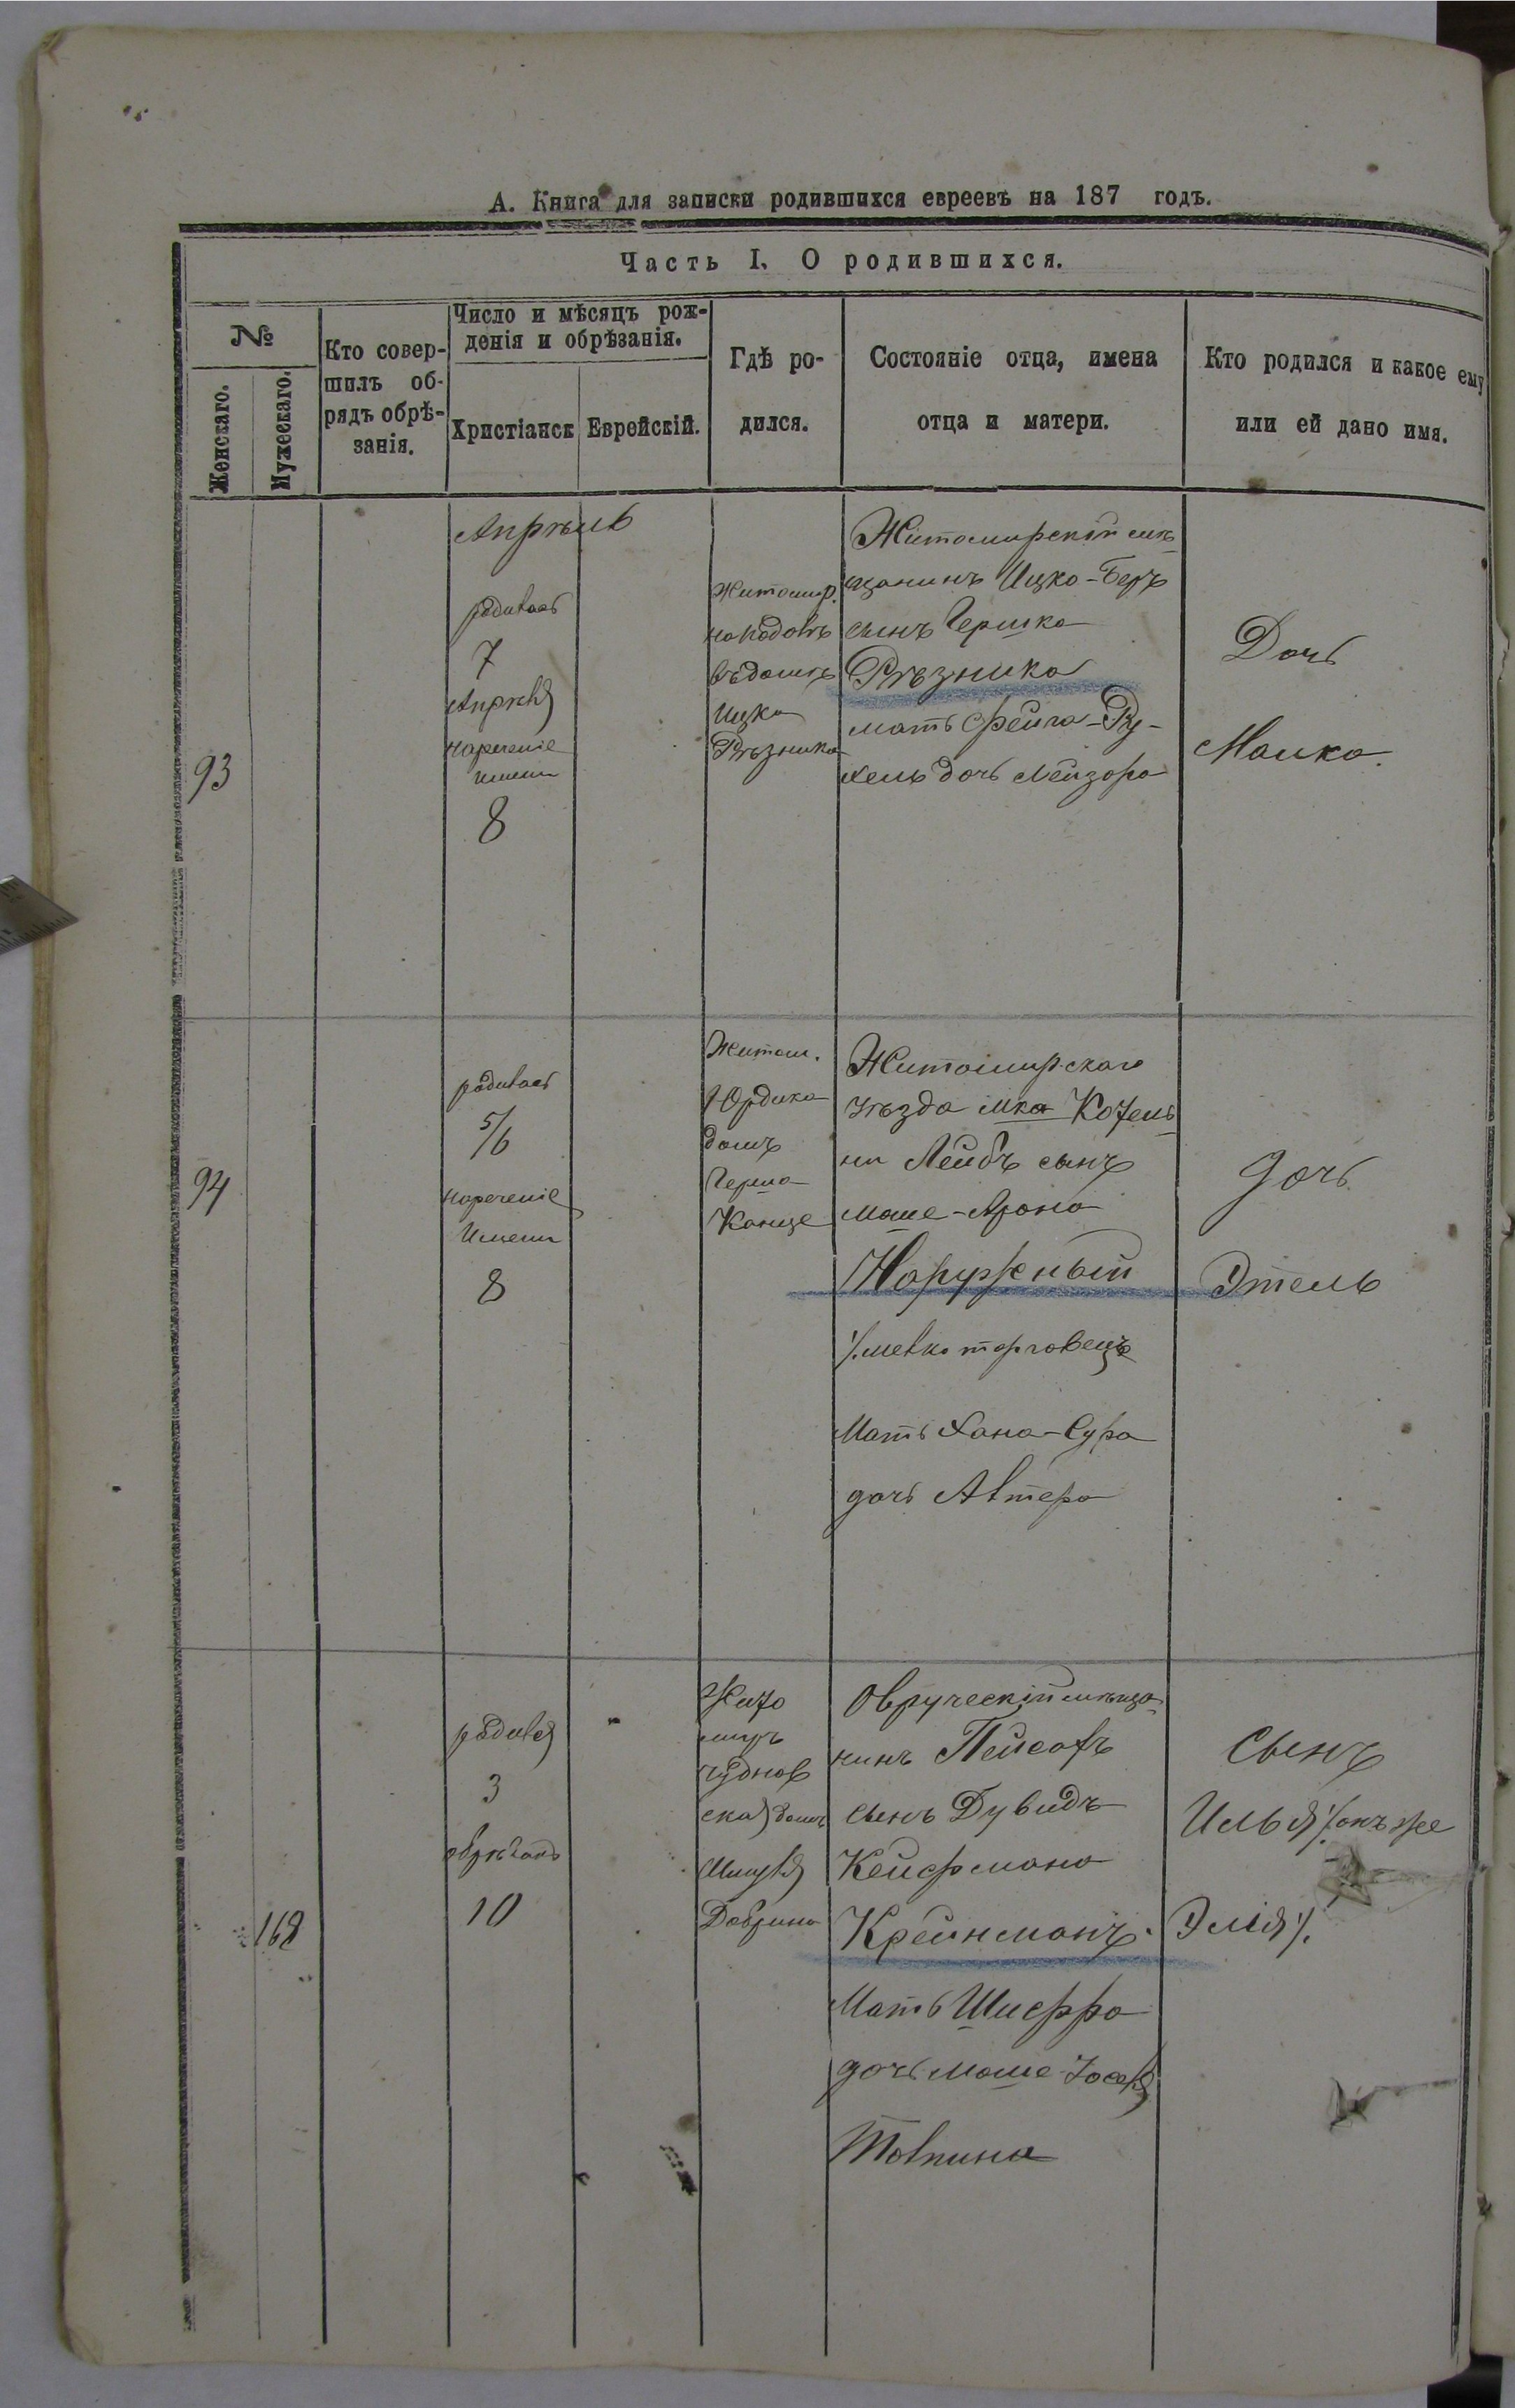 А. Книга для записки родившихся евреевъ на 187 годъ.
Часть I. О родившихся.
№
Женскаго.
Мужескаго.
Кто совер-
шилъ об-
рядъ обрѣ-
занія.
Число и мѣсяцъ рож-
денія и обрѣзанія.
Христіанск
Еврейскій.
Гдѣ ро-
дился.
Состояніе отца, имена
отца и матери.
Кто родился и какое ему
или ей дано имя.
93
Апрѣль
родилась
7
Апрѣля
нареченіе
имени
8
Житомир.
въ домѣ
Ицка
Рѣзника
Житомирскій мѣ-
щанинъ Ицко-Беръ
сынъ Гершка
Рѣзника
мать Фейга-Ру-
хель дочь Лейзора
Дочь
Малка.
94
родилась
5/6
нареченіе
Имени
8
Житом.
Юрдика
домъ
Герша
Канце
Житомирскаго
уѣзда мка Котель-
ни Лейбъ сынъ
Моше-Арона
Наружный
٪мелко торговецъ
Мать Хана-Сура
дочь Алтера
Дочь
Этель
168
родился
3
обрѣзанъ
10
Жито
миръ
чуднов
ская домъ
Шмуля
Добрина
Овруческій мѣща-
нинъ Пейсахъ
сынъ Дувидъ
Кейфмана
Крейнманъ.
Мать Шифра
дочь Моше-Іоселя
Толпина
Сынъ
Илья ٪онъ же
Элія٪.